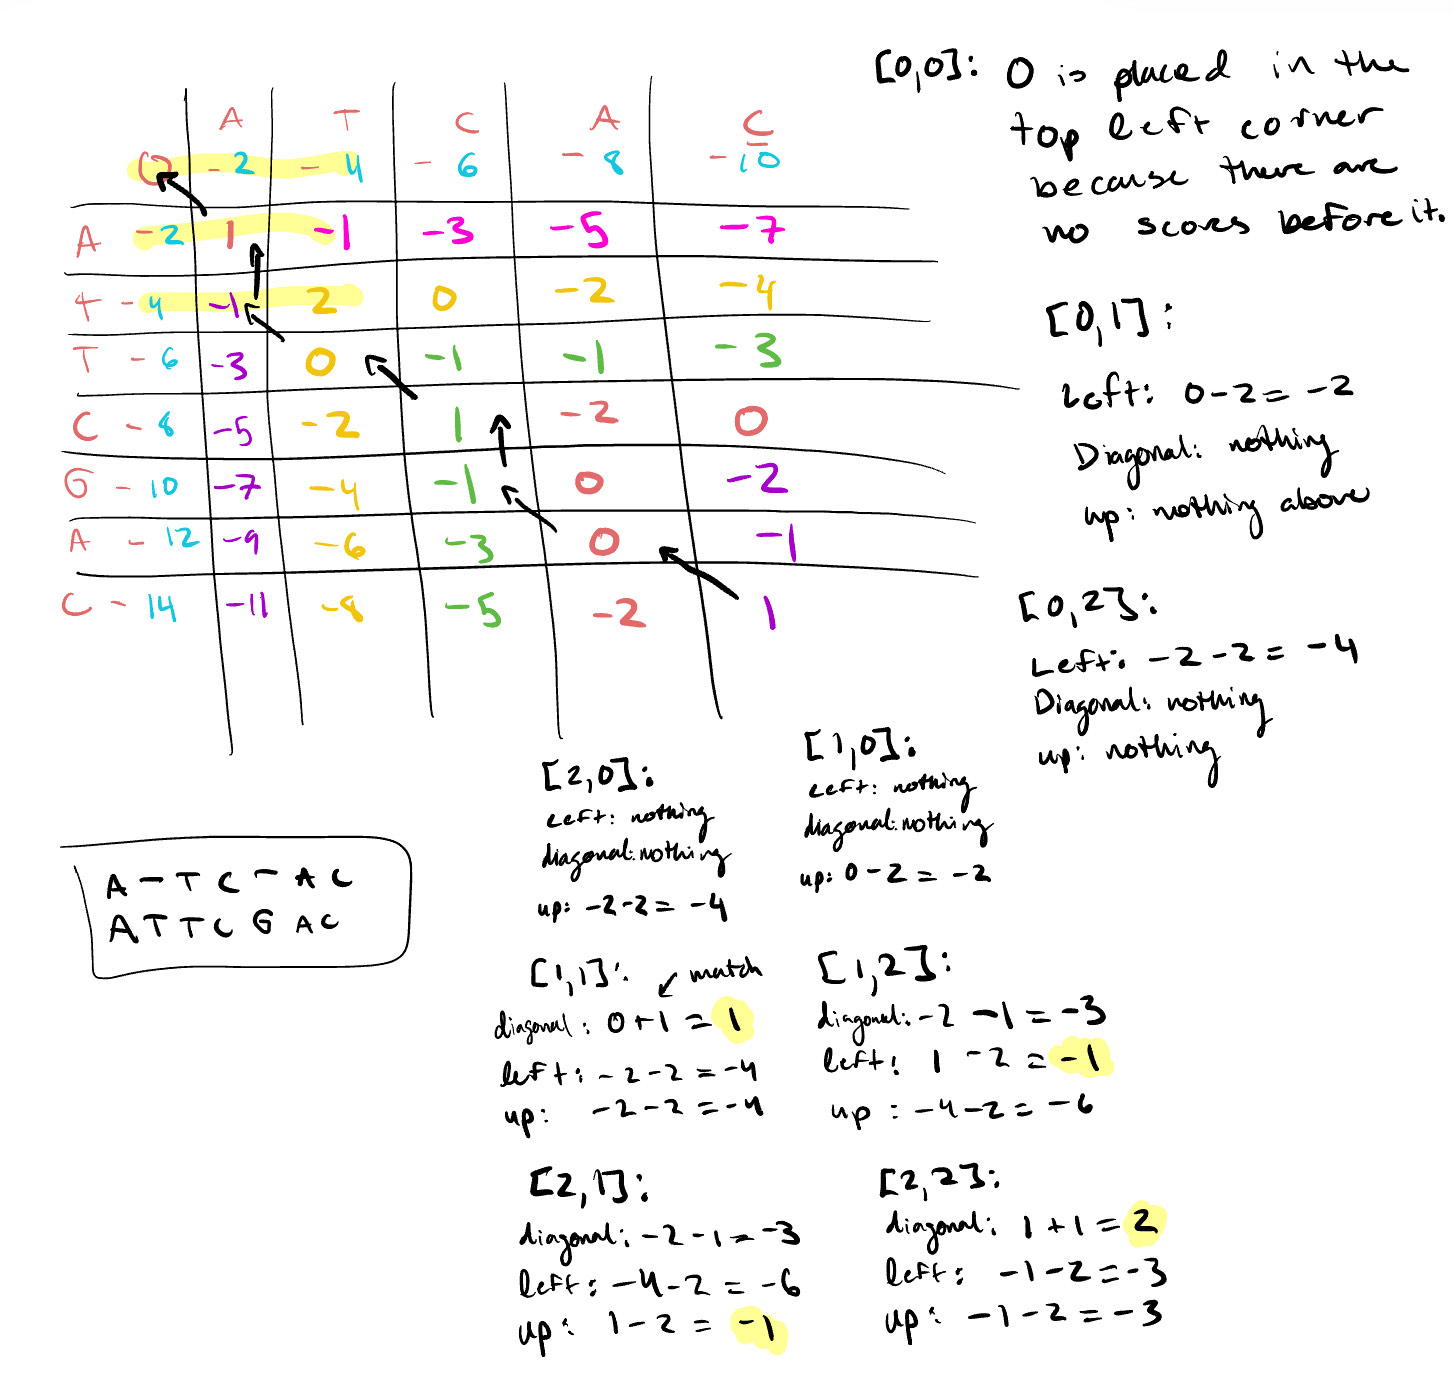 A T C A C
0 -2 -4 -6 -8 -10
A -2 1 -1 -3 -5 -7
T -4 -1 2 0 -2 -4
T -6 -3 0 -1 -1 -3
C -8 -5 -2 1 -2 0
G -10 -7 -4 -1 0 -2
A -12 -9 -6 -3 0 -1
C -14 -11 -8 -5 -2 1
[0,0]: 0 is placed in the
top left corner
because there are
no scores before it.
[0,1]:
Left: 0-2 = -2
Diagonal: nothing
up: nothing above
[0,2]:
Left: -2-2 = -4
Diagonal: nothing
up: nothing
[2,0]:
Left: nothing
diagonal: nothing
up: -2-2 = -4
[1,0]:
Left: nothing
diagonal: nothing
up: 0-2 = -2
A - T C - A C
A T T C G A C
[1,1]: ↙ match
diagonal: 0+1 = 1
left: -2-2 = -4
up: -2-2 = -4
[1,2]:
diagonal: -2 -1 = -3
left: 1 -2 = -1
up: -4-2 = -6
[2,1]:
diagonal: -2-1 = -3
left: -4-2 = -6
up: 1-2 = -1
[2,2]:
diagonal: 1+1 = 2
left: -1-2 = -3
up: -1-2 = -3